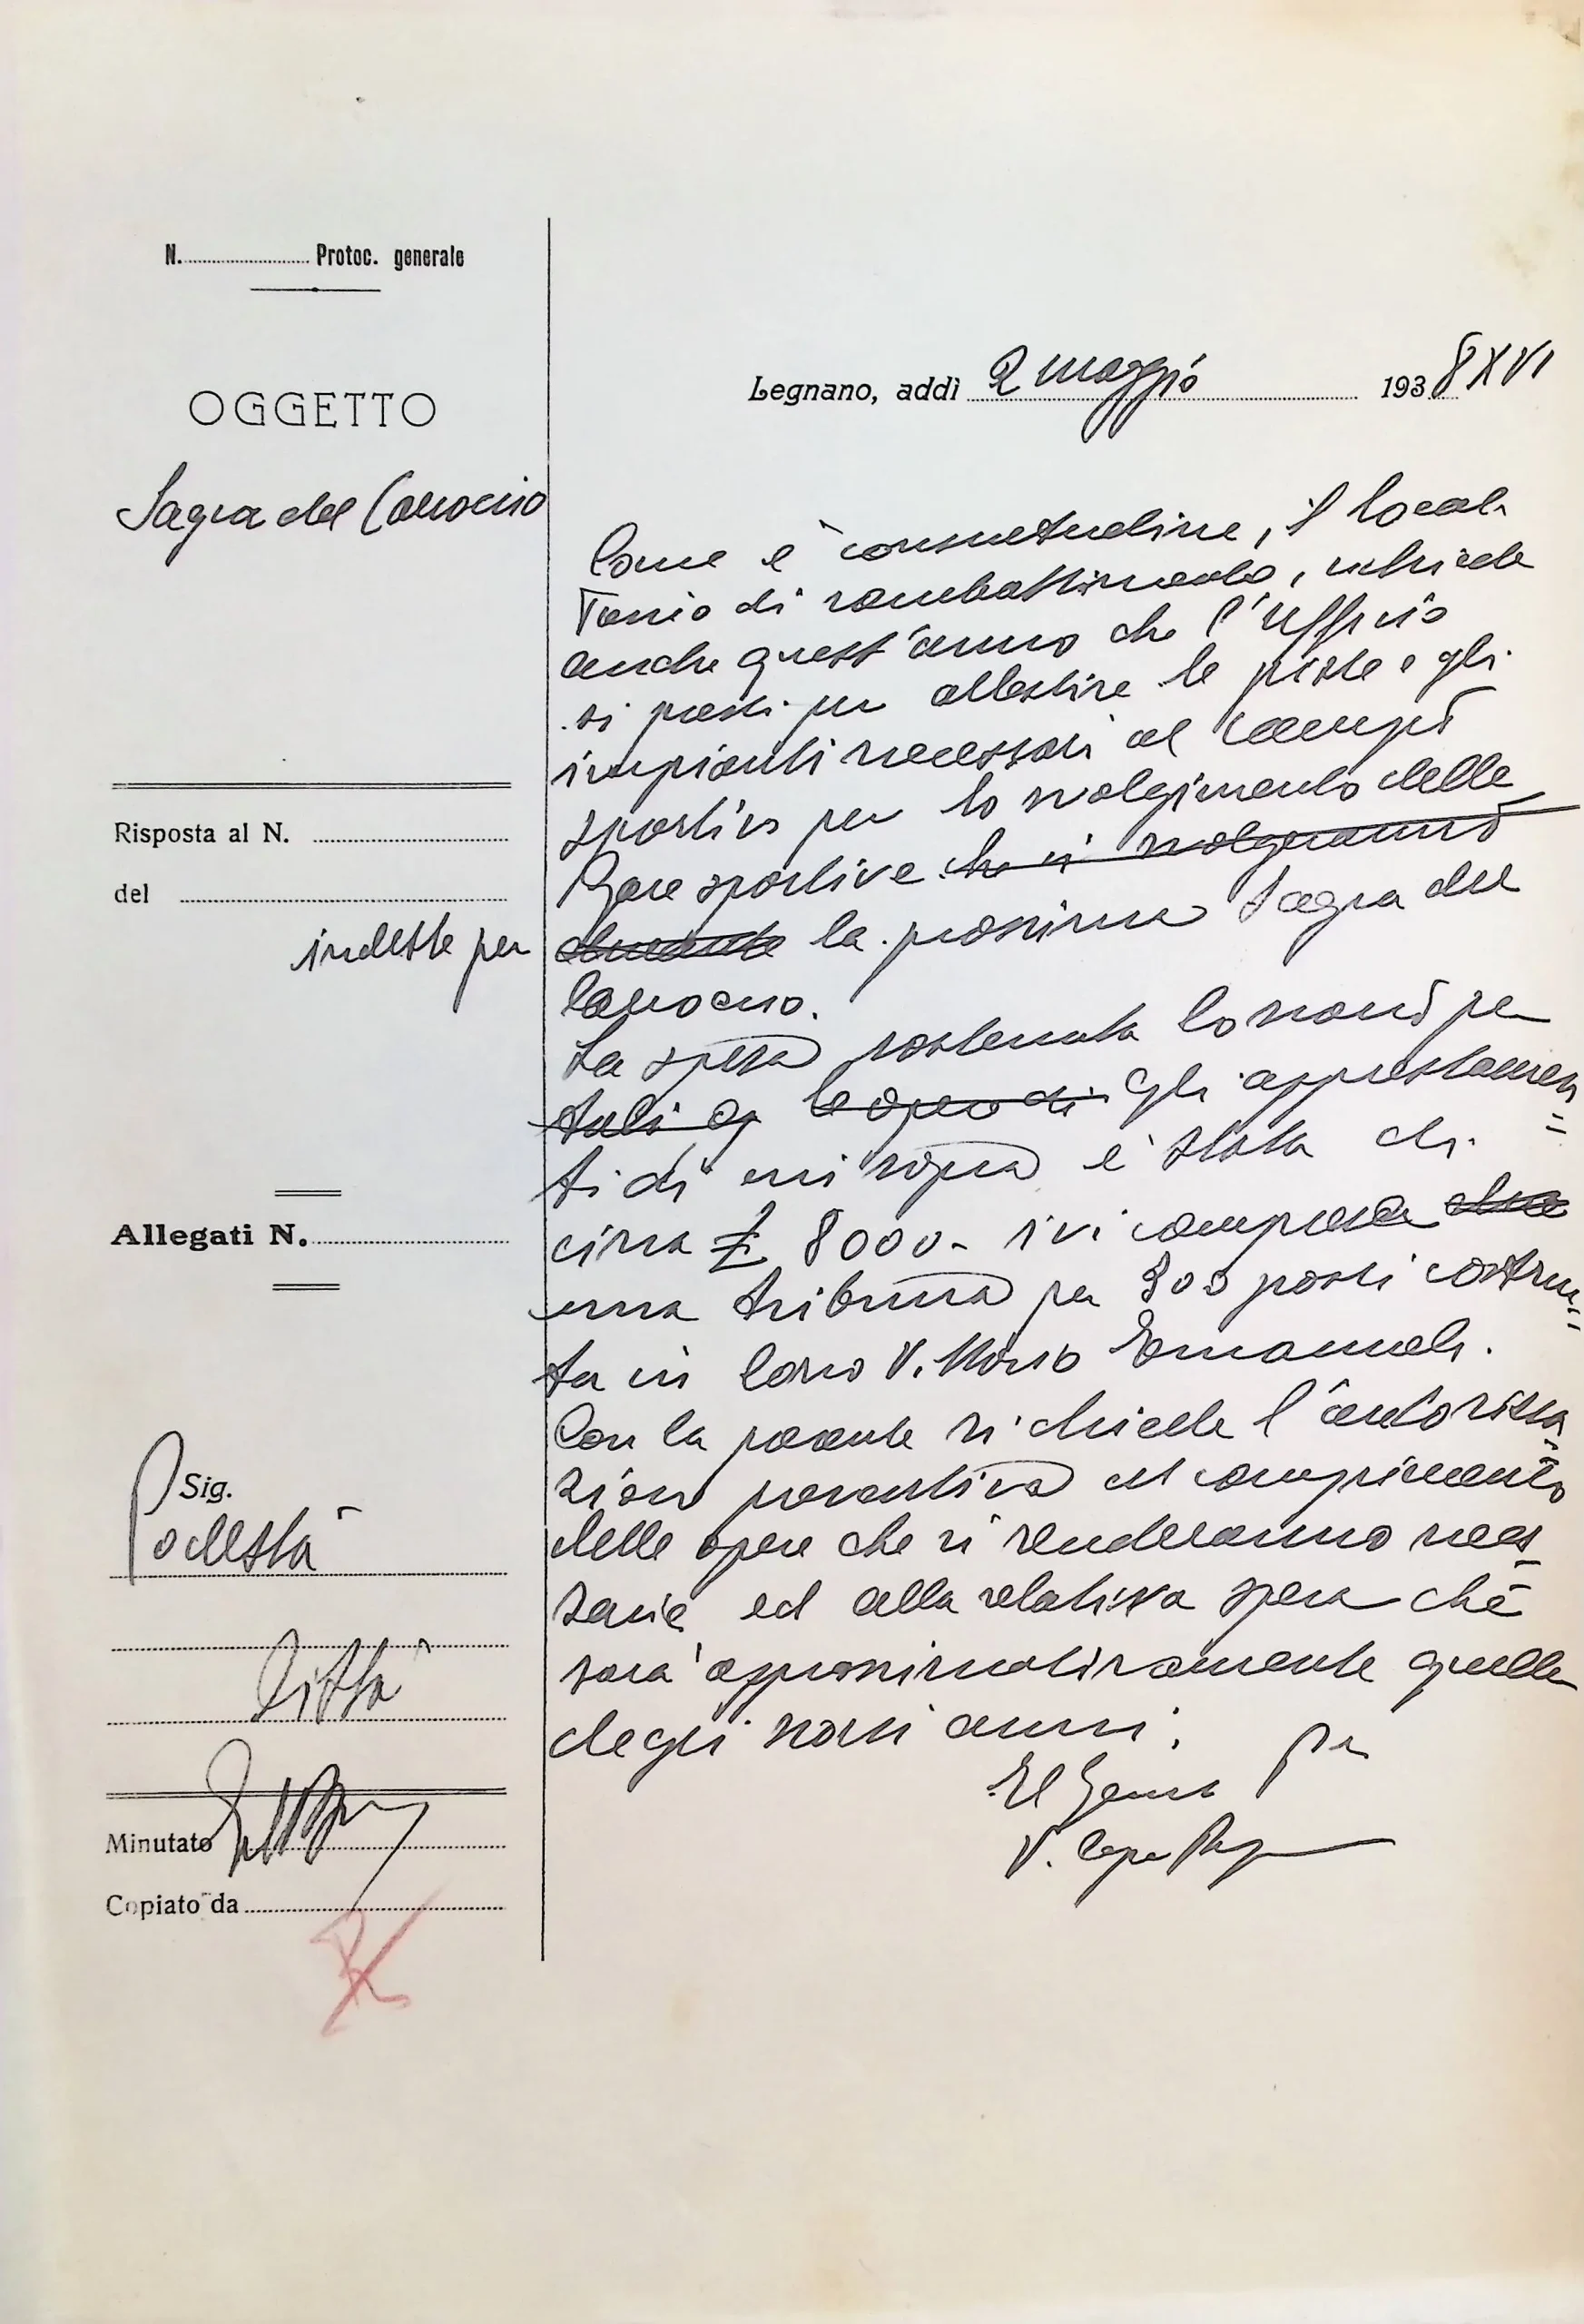 N. Protoc. generale
OGGETTO
Sagra del Carroccio
Risposta al N.
del
indette per
Allegati N.
Sig.
Podestà
Città
Minutato
Copiato da
Legnano, addì 2 maggio 1938 XVI
Come è consuetudine, il locale
Fascio di combattimento, richiede
anche quest'anno che l'Ufficio
si presti per allestire le piste e gli
impianti necessari al Campo
sportivo per lo svolgimento delle
Gare sportive che si svolgeranno
durante la prossima Sagra del
Carroccio.
La spesa sostenuta lo scorso per
le opere di gli apprestamen=
ti di cui sopra è stata di
circa £ 8000 - ivi compresa
una tribuna per 300 posti costrui=
ta in Corso V. Emanuele.
Con la presente si chiede l'autorizza=
zione preventiva al compimento
delle opere che si renderanno neces
sarie ed alla relativa spesa che
sarà approssimativamente quella
degli scorsi anni.
Il
V. Capo